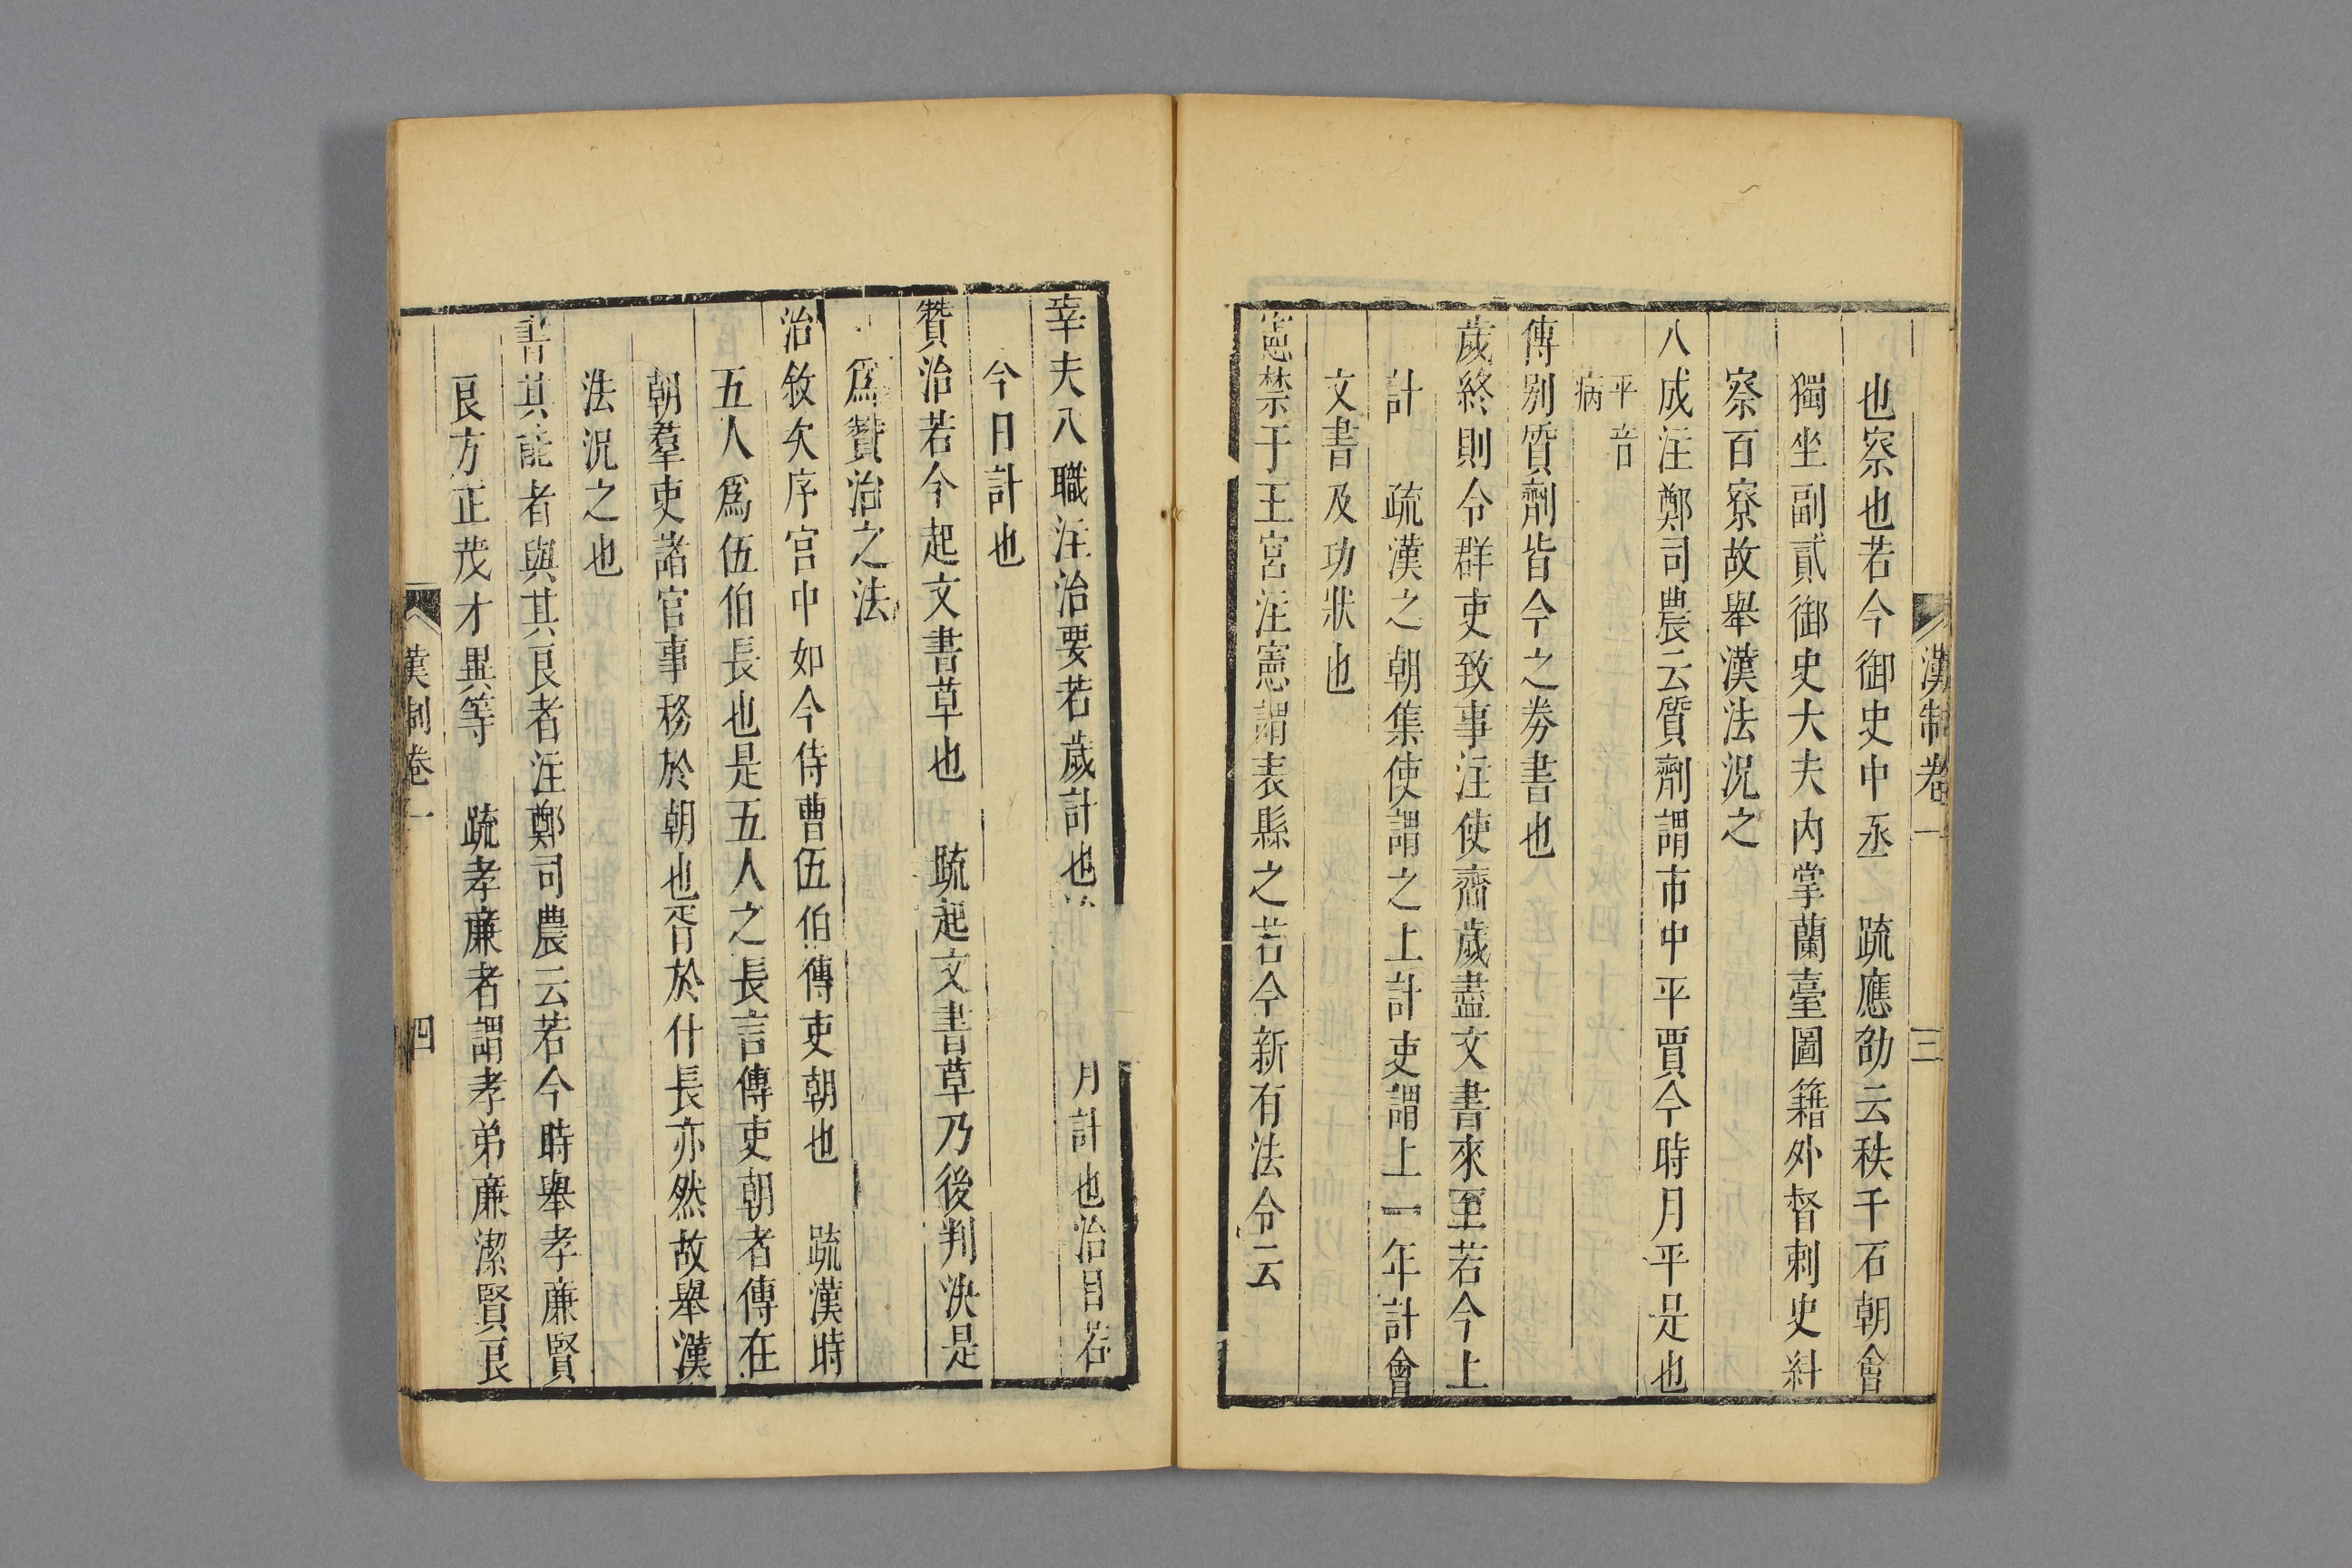 漢制卷一 三
也察也若今御史中丞 疏應劭云秩千石朝會
獨坐副貳御史大夫内掌蘭臺圖籍外督刺史糾
察百寮故舉漢法況之
八成注鄭司農云質劑謂市中平賈今時月平是也
平音
病
傳别質劑皆今之劵書也
歲終則令群吏致事注使齎歲盡文書來至若今上
計 疏漢之朝集使謂之上計吏謂上一年計會
文書及功狀也
憲禁于王宮注憲謂表縣之若今新有法令云
宰夫八職注治要若歲計也 月計也治目若
今日計也
贊治若今起文書草也 䟽起文書草乃後判決是
爲贊治之法
治敘次序官中如今侍曹伍伯傳吏朝也 疏漢時
五人爲伍伯長也是五人之長言傳吏朝者傳在
朝羣吏諸官事務於朝也胥於什長亦然故舉漢
法況之也
書其能者與其良者注鄭司農云若今時舉孝廉賢
良方正茂才異等 疏孝廉者謂孝弟廉潔賢良
漢制卷一 四